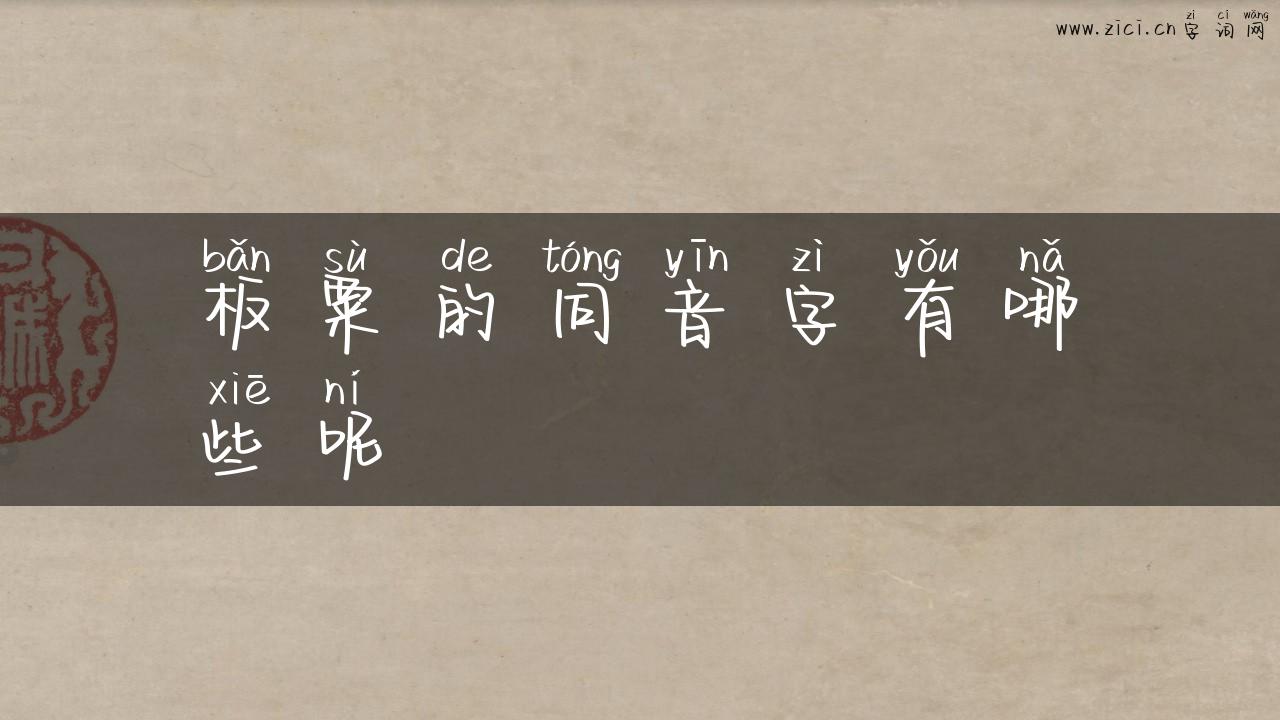 zì cí wǎng
www.zici.cn 字词网
bǎn sù de tóng yīn zì yǒu nǎ
板粟的同音字有哪
xiē ní
些呢